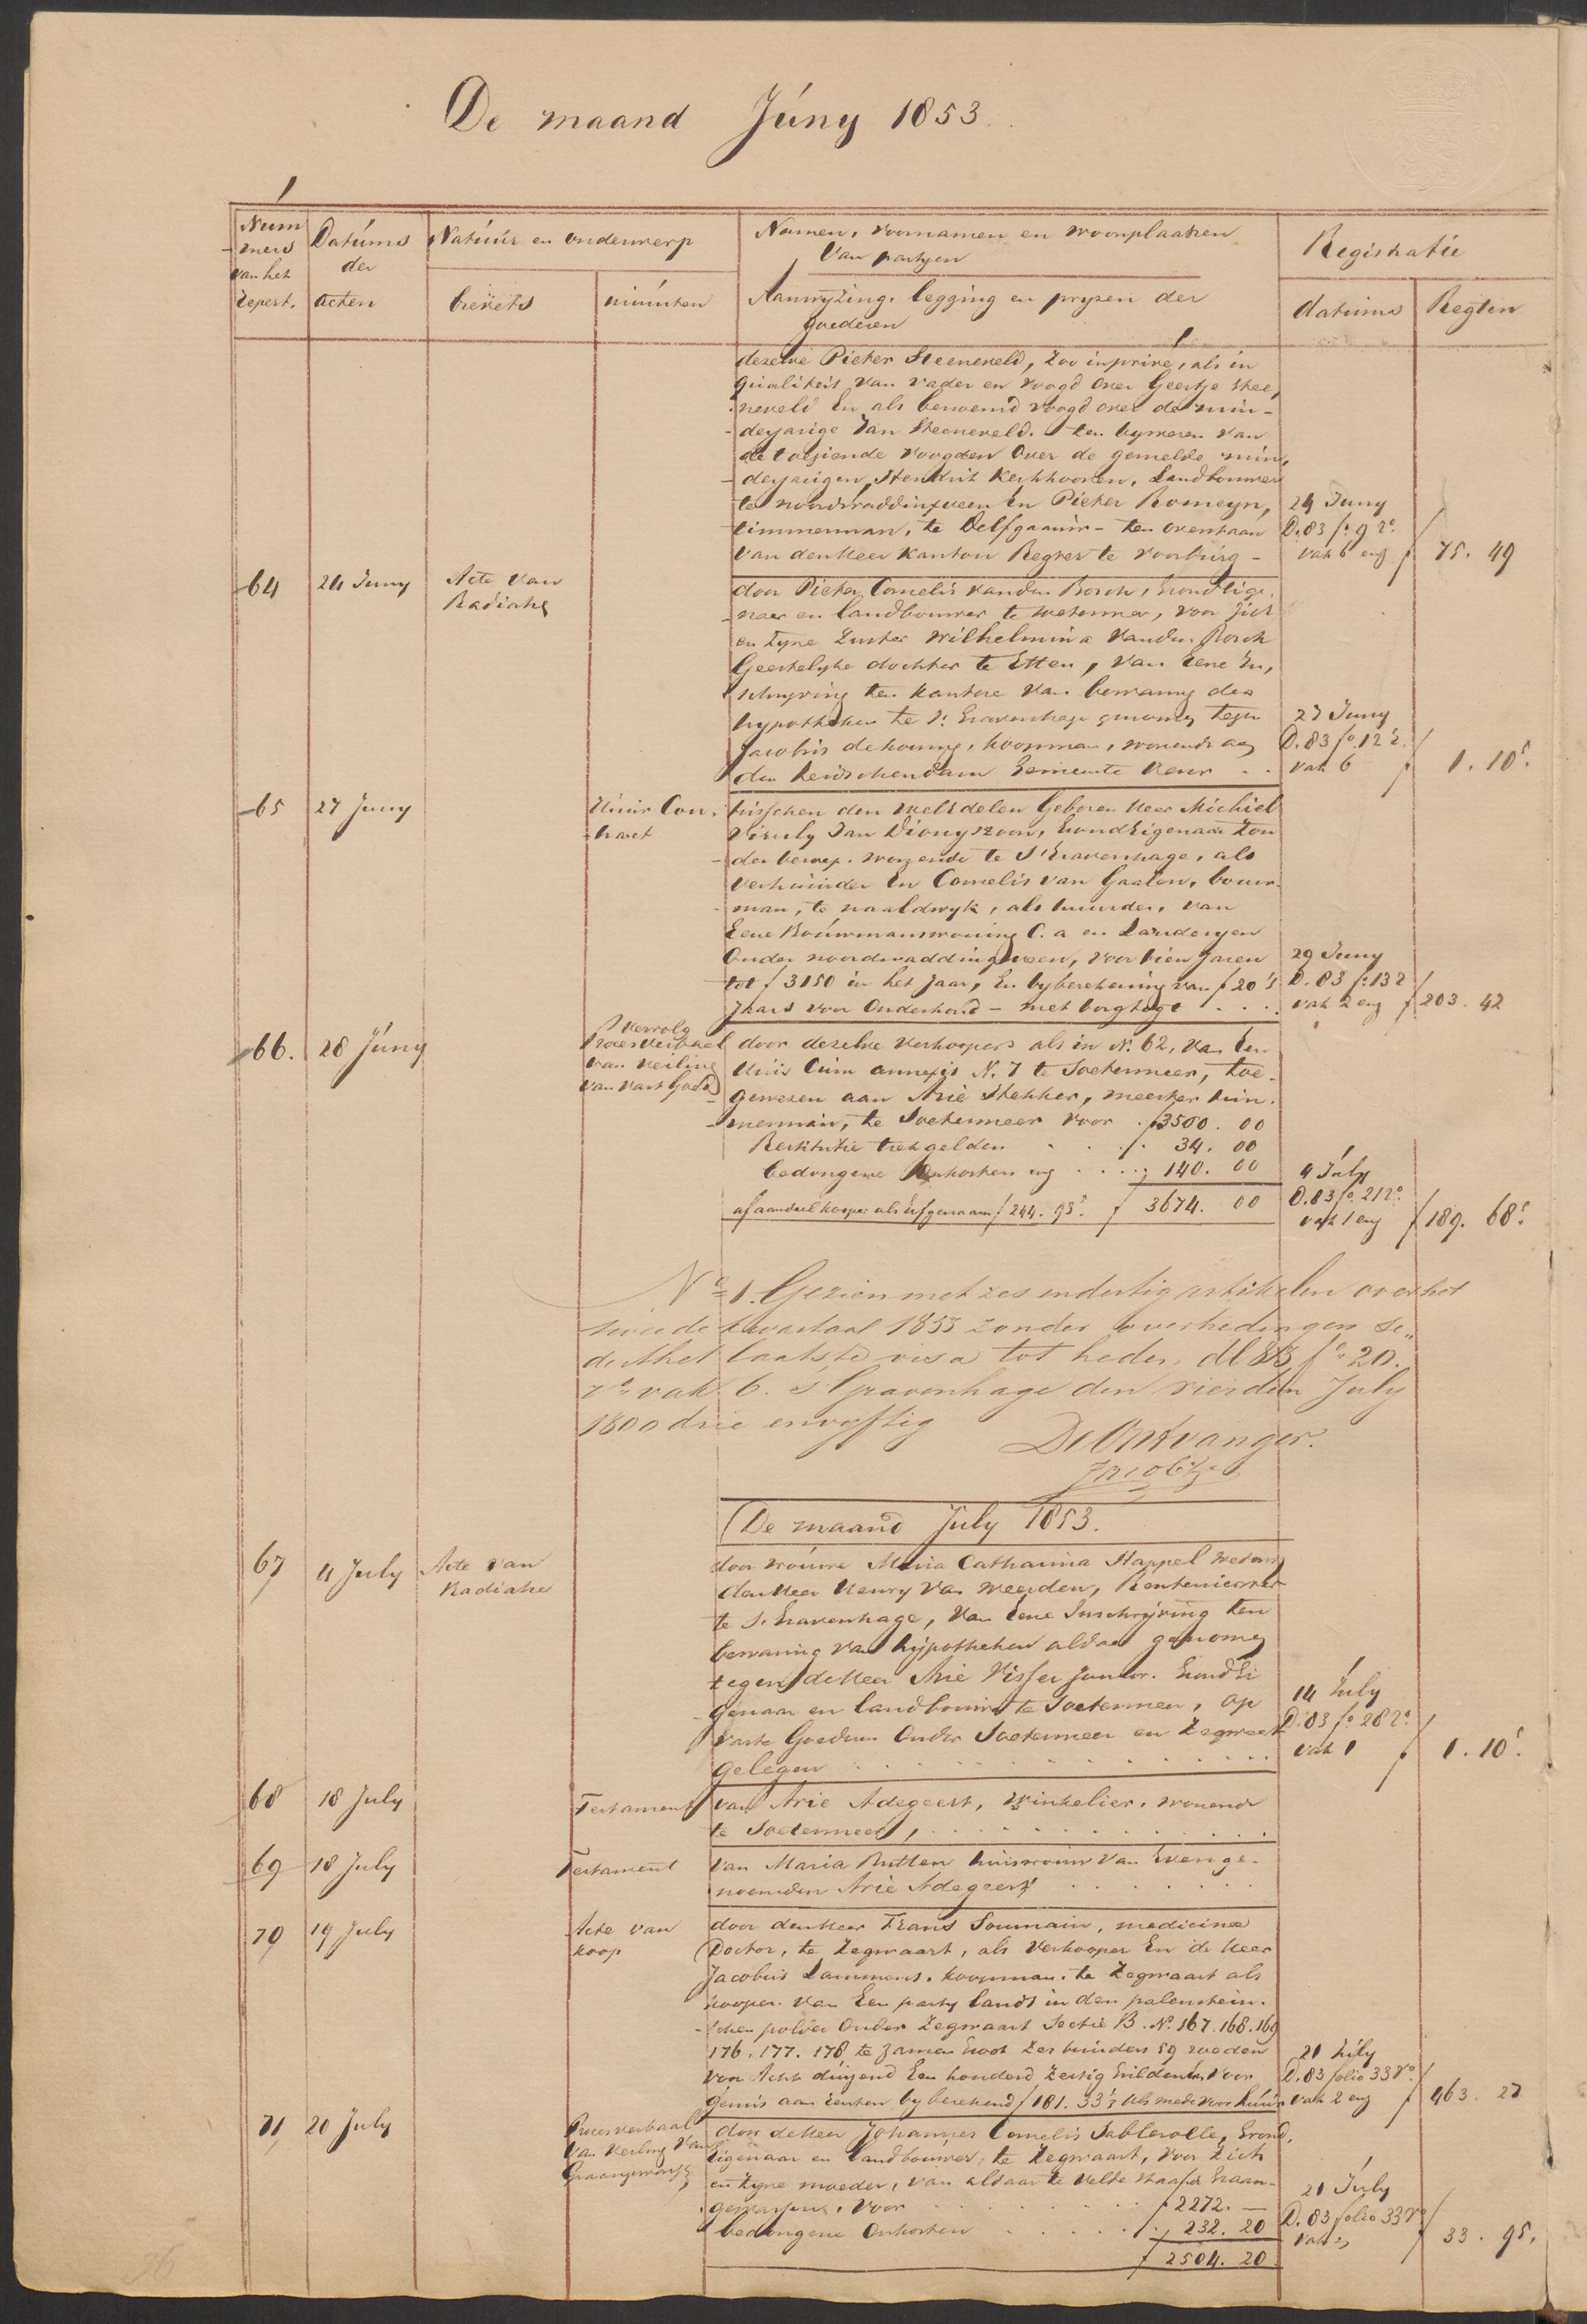 De maand Júny 1853
Nummers van het Repert.
Datúms der acten
Natúúr en onderwerp
brevets
minúten
Namen, voornamen en woonplaatsen
van partyen
Aanwyzing, legging en pryzen der
goederen
Registratie
datúms
Regten
dezelve Pieter Steeneveld, zoo in privé, als in
qúaliteit van vader en voogd over Geertje Stee,
neveld En als benoemd voogd over de min-
-derjarige Jan Steeneveld. ten bywezen van
de toeziende voogden Over de gemelde min,
-derjarigen, Hendrik Kerkhooven, Landbouwer
te noordwaddinxveen En Pieter Romeyn,
timmerman, te Delfgaauw - ten overstaan
van den Heer Kanton Regter te Voorbúrg -
24 Juny
D. 83 fo. 9 ro.
vak 6 env
f 75. 49
64
24 Juny
Acte van
Radiatie
door Pieter Cornelis vanden Bosch, Grondeige,
-naar en landbouwer te Soetermeer, voor zich
en zyne Zuster Wilhelmina vanden Bosch
Geestelyke dochter te Etten, van Eene In,
schryving ten kantore van bewaring der
hypotheken te s. Gravenhage genomen tegen
Jacobús de Koning, koopman, wonende aan
den Leidschendam Gemeente Veur . .
27 Juny
D. 83 fo. 12 r.
vak 6
f 1. 10⁵
65
27 Juny
Húúr Con,
-tract
tússchen den Weledelen Geboren Heer Michiel
Viruly Jan Dionyszoon, GrondEigenaar zon
-der beroep. wonende te s'Gravenhage, als
verhúúrder En Cornelis van Gaalen, bouw-
-man, te naaldwyk, als húúrder, van
Eene Boúwmanswoning C. a en Landeryen
Onder noordwaddingsveen, voor tien Jaren
tot f 3150 in het Jaar, En byberekening van f 20 's
Jaars voor Onderhoud - met borgtogt . . . .
29 Juny
D. 83 fo. 13 r
vak 2 env
f 203. 42
66.
28 Júny
Vervolg
Procesverbaal
van veiling
van vast Goed
door dezelve verkoopers als in No. 62, van Een
Húis Cum annexis N. 7 te Soetermeer, toe-
gewezen aan Arie Stekker, meester tim-
-merman, te Soetermeer voor . f 3500. 00
Restitutie trekgelden . . . f. 34. 00
bedongene Onkosten env . . . . 140. 00
af aandeel kooper als Erfgenaam f 244. 93⁵. f 3674. 00
4 July
D. 83 fo. 21 ro.
vak 1 env
f 189. 68⁵
No. 1. Gezien met zes en dertig artikelen over het
tweede kwartaal 1853 zonder overtredingen se„
dert het laatste visa tot heden, dl 83 fo. 20.
ro. vak 6. s'Gravenhage den vierden July
1800 drie en vyftig
De Ontvanger.
De maand July 1853.
67
4 July
Acte van
Radiatie
door vroúwe Maria Catharina Stappel weduwe
den Heer Henry van Weerden, Rentenierster
te s. Gravenhage, van Eene Inschryving ten
bewaring van hypotheken aldaar genomen
tegen de Heer Arie Visser Junior. GrondEi
-genaar en landboúwer te Soetermeer, op
vaste Goederen Onder Soetermeer en Zegwaart
gelegen . . . . . . . . . .
14 July
D. 83 fo. 28 ro.
vak 1
f 1. 10⁵.
68
18 July
Testament
van Arie Adegeest, Winkelier, wonende
te Soetermeer, . . . . . . . .
69
18 July
Testament
van Maria Rutten húisvroúw van Evenge-
noemden Arie Adegeest . . . . . .
70
19 July
Acte van
koop
door den Heer Frans Soumain, medicinae
Doctor, te Zegwaart, als verkooper En de Heer
Jacobús Lammens, koopman, te Zegwaart als
kooper. van Een party lands in den palenstein-
-schen polder Onder Zegwaart Sectie B. No. 167. 168. 169
176. 177. 178 te zamen Groot zes bunders 59 roeden
voor Acht dúizend Een honderd zestig Gúldens, voor
genús aan renten byberekend f 181. 33⁵
21 Júly
D. 83 folio 33 ro.
vak 2 env
f 463. 27
71
20 July
Procesverbaal
van veiling van
Graangewassen
door de Heer Johannes Cornelis Sablerolle, Grond,
Eigenaar en Landboúwer, te Zegwaart, voor zich
en zyne moeder, van aldaar te velde staande Graan-
gewassen, voor . . . . . f 2272. —
bedongene Onkosten . . . . . 232. 20
f 2504. 20
21 July
D. 83 folio 33 ro
vak 3
f 33. 95.